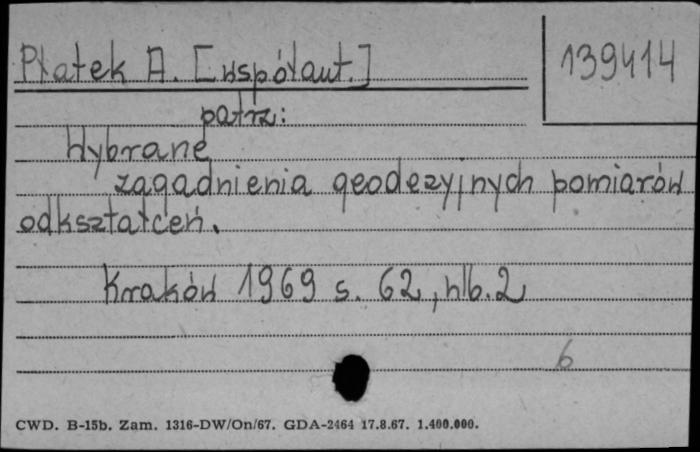 Płatek A. [współaut.]
139414
patrz:
Wybrane
zagadnienia geodezyjnych pomiarów
odkształceń.
Kraków 1969 s. 62, nlb. 2
6
CWD. B-15b. Zam. 1316-DW/On/67. GDA-2464 17.8.67. 1.400.000.